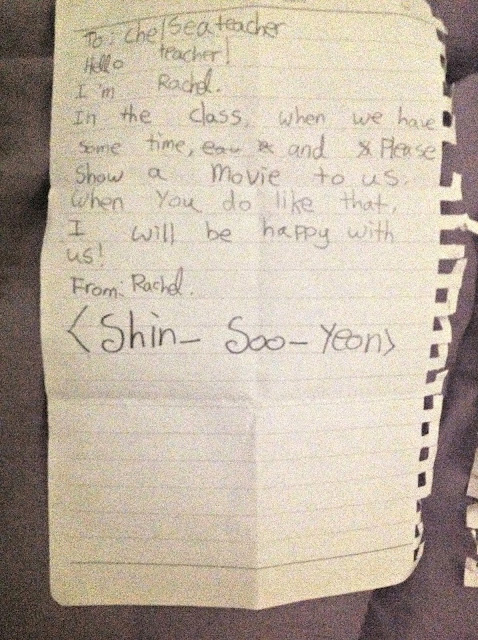 To: Chelsea teacher
Hello teacher!
I'm Rachel.
In the class, when we have
some time, and Please
Show a Movie to us.
When You do like that,
I will be happy with
us!
From: Rachel.
<Shin- Soo- Yeon>